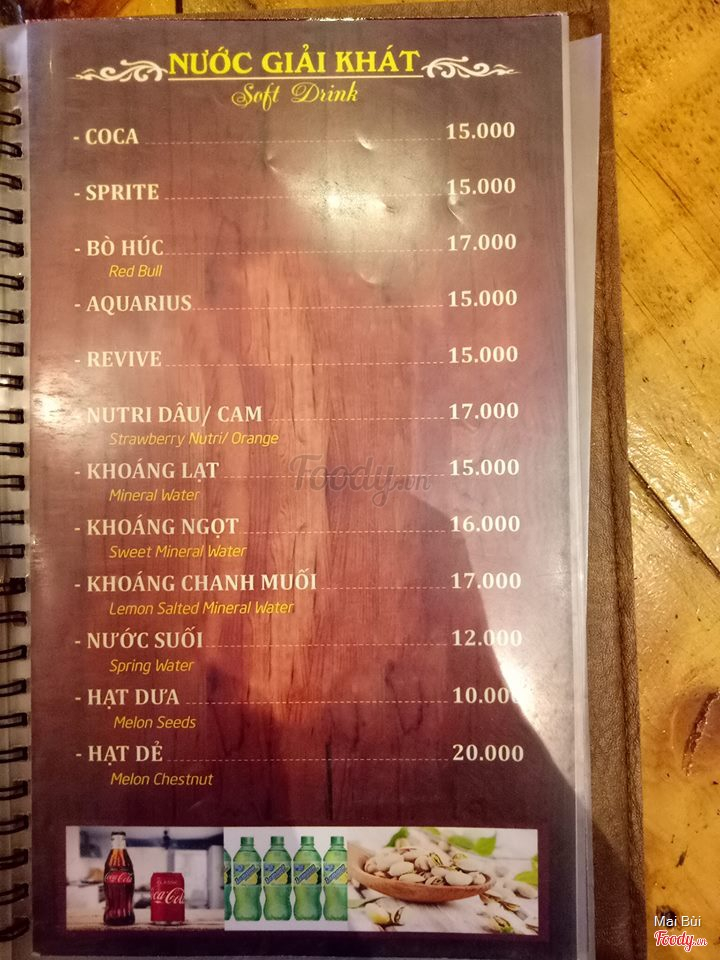 NƯỚC GIẢI KHÁT
Soft Drink
- COCA 15.000
- SPRITE 15.000
- BÒ HÚC 17.000
Red Bull
- AQUARIUS 15.000
- REVIVE 15.000
- NUTRI DÂU/ CAM 17.000
Strawberry Nutri/ Orange
- KHOÁNG LẠT 15.000
Mineral Water
- KHOÁNG NGỌT 16.000
Sweet Mineral Water
- KHOÁNG CHANH MUỐI 17.000
Lemon Salted Mineral Water
- NƯỚC SUỐI 12.000
Spring Water
- HẠT DƯA 10.000
Melon Seeds
- HẠT DẺ 20.000
Melon Chestnut
Foody.vn
Coca-Cola
Coca-Cola
Mai Bùi
Foody.vn